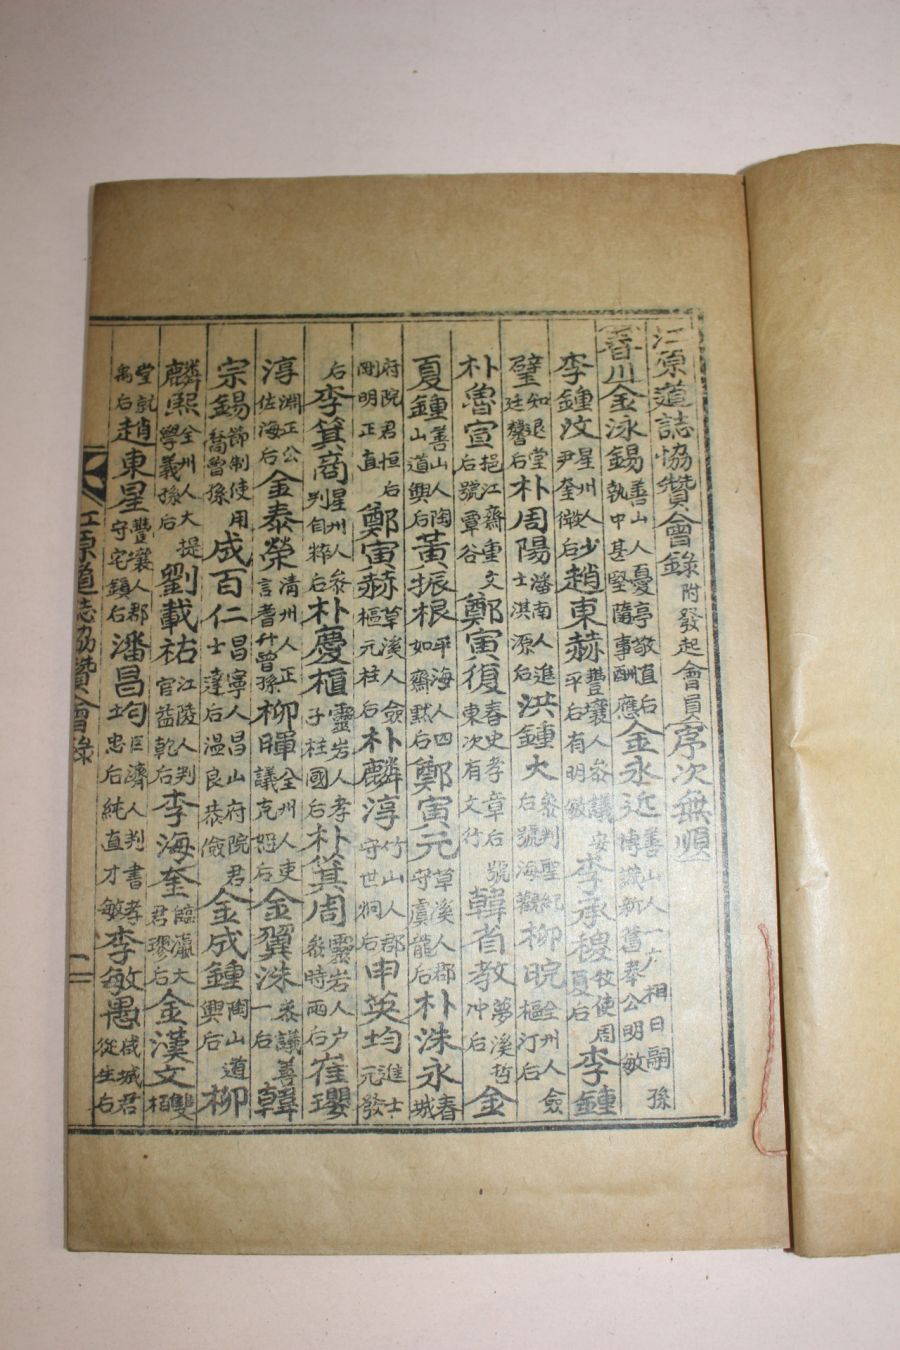 江原道誌協贊會錄 附發起會員 序次無順
春川 金泳錫 善山人憂亭敬直后 執中甚堅隨事酬應 金永近 善山人一六相日嗣孫 博識新舊奉公明敏
李鍾汶 星州人少尹奎微后 趙東赫 豐壤人參議安平后有明敏 李承稷 牧使周夏后 李鍾
璧 知退堂廷馨后 朴周陽 潘南人進士淇源后 洪鍾大 參判聖紀后號海觀 柳晥 全州人僉樞汀后
朴魯宣 挹江齋重文后號覃谷 鄭寅復 春史孝章后號東次有文行 韓省敎 夢溪哲冲后 金
夏鍾 善山人陶山道興后 黃振根 平海人四如齋默后 鄭寅元 草溪人郡守虞龍后 朴洙永 春城
府院君恒后剛明正直 鄭寅赫 草溪人僉樞元柱后 朴麟淳 竹山人郡守世炯后 申英均 進士元發
后 李箕商 星州人參判自粹后 朴慶樞 靈岩人孝子柱國后 朴箕周 靈岩人戶參時雨后 崔瓔
淳 淵正公佐海后 金泰榮 清州人正言耆升曾孫 柳暉 全州人吏議克恕后 金翼洙 參議善一后 韓
宗錫 節制使用喬曾孫 成百仁 昌寧人昌山府院君士達后溫良恭儉 金成鍾 陶山道興后 柳
麟熙 全州人大提學義孫后 劉載祐 江陵人判官益乾后 李海奎 臨瀛大君璆后 金漢文 雙栢
堂訖禹后 趙東星 豐壤人郡守宅鎭后 潘昌均 巨濟人判書孝忠后純直才敏 李敏愚 咸城君從生后
江原道誌協贊會錄 一